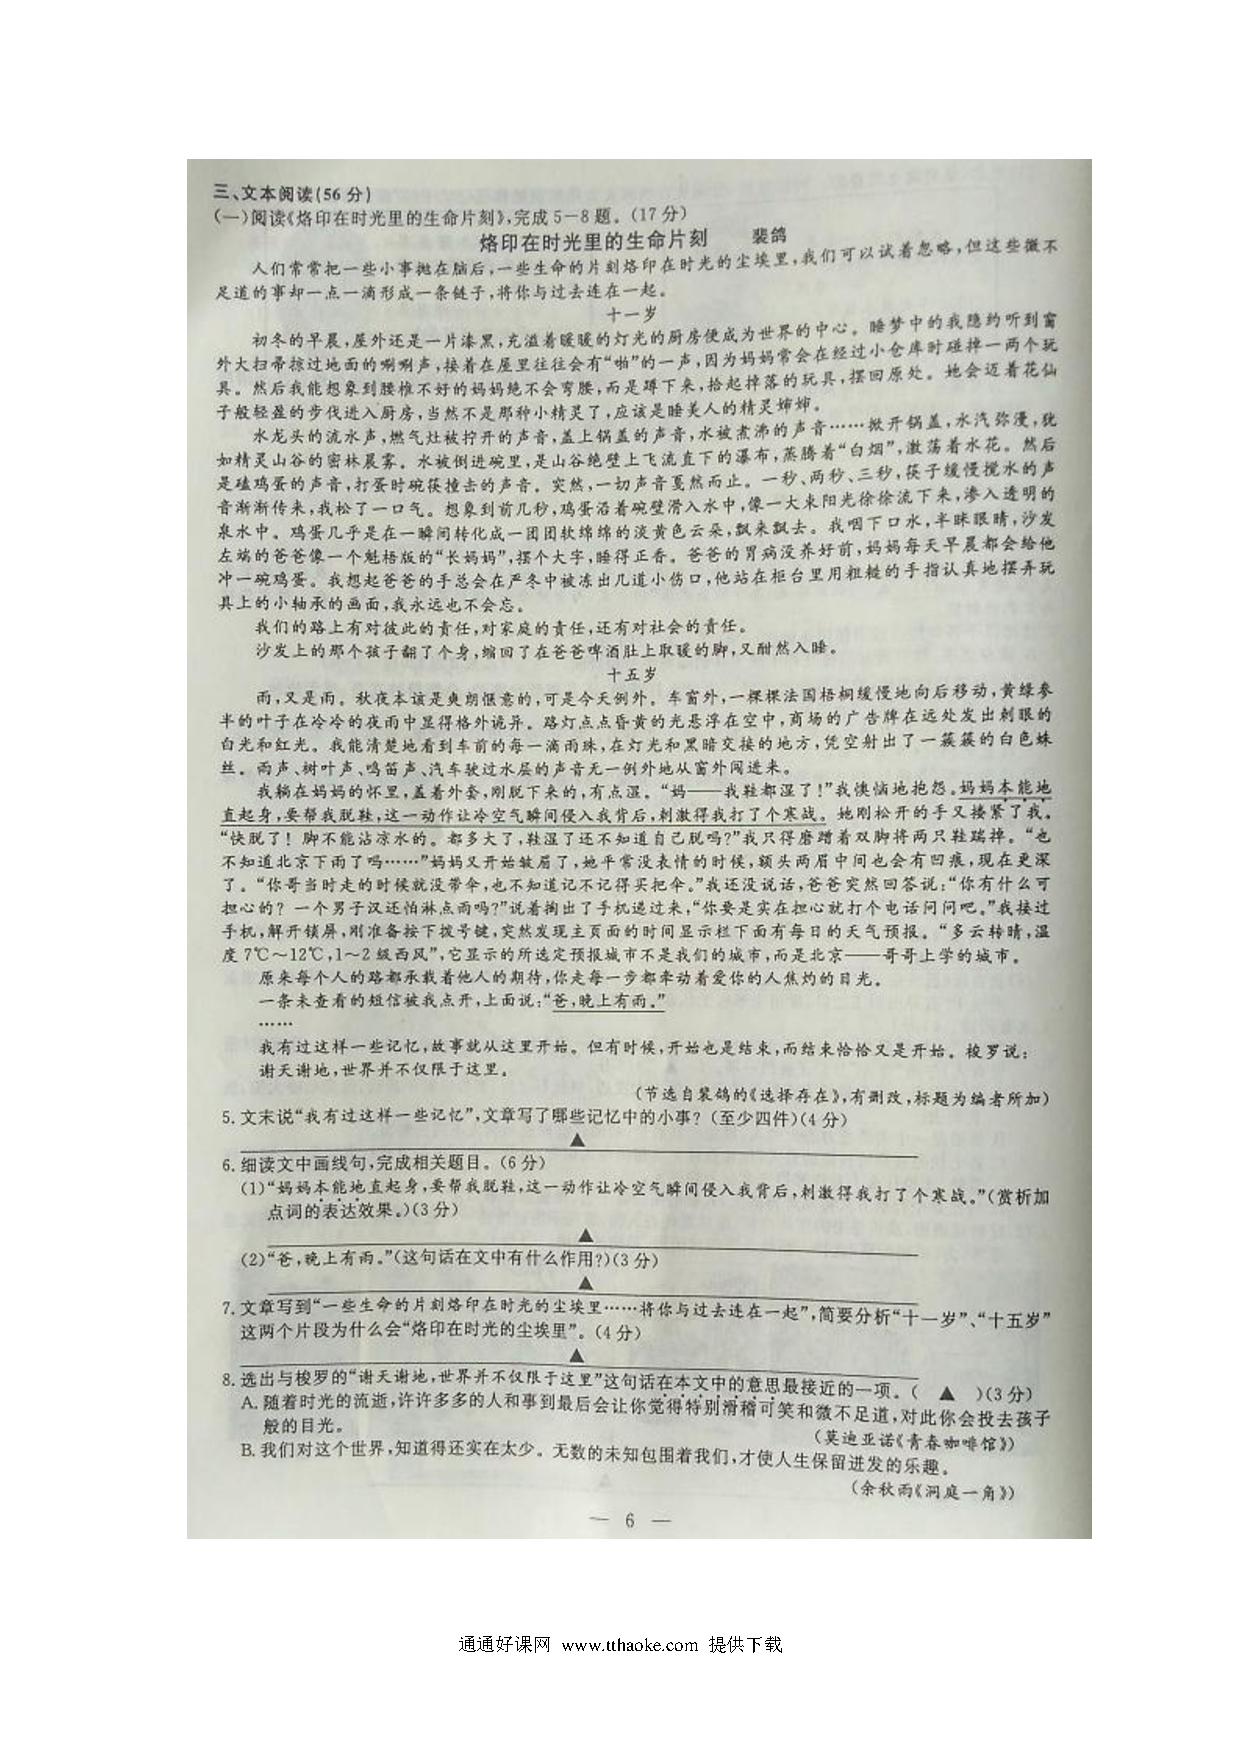 三、文本阅读(56 分)
(一)阅读《烙印在时光里的生命片刻》,完成5-8题。(17 分)
烙印在时光里的生命片刻 裴鸽
人们常常把一些小事抛在脑后,一些生命的片刻烙印在时光的尘埃里,我们可以试着忽略,但这些微不
足道的事却一点一滴形成一条链子,将你与过去连在一起。
十一岁
初冬的早晨,屋外还是一片漆黑,充溢着暖暖的灯光的厨房便成为世界的中心。睡梦中的我隐约听到窗
外大扫帚掠过地面的唰唰声,接着在屋里往往会有“啪”的一声,因为妈妈常会在经过小仓库时碰掉一两个玩
具。然后我能想象到腰椎不好的妈妈绝不会弯腰,而是蹲下来,拾起掉落的玩具,摆回原处。她会迈着花仙
子般轻盈的步伐进入厨房,当然不是那种小精灵了,应该是睡美人的精灵婶婶。
水龙头的流水声,燃气灶被拧开的声音,盖上锅盖的声音,水被煮沸的声音……掀开锅盖,水汽弥漫,犹
如精灵山谷的密林晨雾。水被倒进碗里,是山谷绝壁上飞流直下的瀑布,蒸腾着“白烟”,激荡着水花。然后
是磕鸡蛋的声音,打蛋时碗筷撞击的声音。突然,一切声音戛然而止。一秒、两秒、三秒,筷子缓慢搅水的声
音渐渐传来,我松了一口气。想象到前几秒,鸡蛋沿着碗壁滑入水中,像一大束阳光徐徐流下来,渗入透明的
泉水中。鸡蛋几乎是在一瞬间转化成一团团软绵绵的淡黄色云朵,飘来飘去。我咽下口水,半眯眼睛,沙发
左端的爸爸像一个魁梧版的“长妈妈”,摆个大字,睡得正香。爸爸的胃病没养好前,妈妈每天早晨都会给他
冲一碗鸡蛋。我想起爸爸的手总会在严冬中被冻出几道小伤口,他站在柜台里用粗糙的手指认真地摆弄玩
具上的小轴承的画面,我永远也不会忘。
我们的路上有对彼此的责任,对家庭的责任,还有对社会的责任。
沙发上的那个孩子翻了个身,缩回了在爸爸啤酒肚上取暖的脚,又酣然入睡。
十五岁
雨,又是雨。秋夜本该是爽朗惬意的,可是今天例外。车窗外,一棵棵法国梧桐缓慢地向后移动,黄绿参
半的叶子在冷冷的夜雨中显得格外诡异。路灯点点昏黄的光悬浮在空中,商场的广告牌在远处发出刺眼的
白光和红光。我能清楚地看到车前的每一滴雨珠,在灯光和黑暗交接的地方,凭空射出了一簇簇的白色蛛
丝。雨声、树叶声、鸣笛声、汽车驶过水层的声音无一例外地从窗外闯进来。
我躺在妈妈的怀里,盖着外套,刚脱下来的,有点湿。“妈——我鞋都湿了!”我懊恼地抱怨。妈妈本能地
直起身,要帮我脱鞋,这一动作让冷空气瞬间侵入我背后,刺激得我打了个寒战。她刚松开的手又搂紧了我。
“快脱了!脚不能沾凉水的。都多大了,鞋湿了还不知道自己脱吗?”我只得磨蹭着双脚将两只鞋踹掉。“也
不知道北京下雨了吗……”妈妈又开始皱眉了,她平常没表情的时候,额头两眉中间也会有凹痕,现在更深
了。“你哥当时走的时候就没带伞,也不知道记不记得买把伞。”我还没说话,爸爸突然回答说:“你有什么可
担心的?一个男子汉还怕淋点雨吗?”说着掏出了手机递过来,“你要是实在担心就打个电话问问吧。”我接过
手机,解开锁屏,刚准备按下拨号键,突然发现主页面的时间显示栏下面有每日的天气预报。“多云转晴,温
度7℃~12℃,1~2级西风”,它显示的所选定预报城市不是我们的城市,而是北京——哥哥上学的城市。
原来每个人的路都承载着他人的期待,你走每一步都牵动着爱你的人焦灼的目光。
一条未查看的短信被我点开,上面说:“爸,晚上有雨。”
……
我有过这样一些记忆,故事就从这里开始。但有时候,开始也是结束,而结束恰恰又是开始。梭罗说:
谢天谢地,世界并不仅限于这里。
(节选自裴鸽的《选择存在》,有删改,标题为编者所加)
5. 文末说“我有过这样一些记忆”,文章写了哪些记忆中的小事?(至少四件)(4 分)
▲
6. 细读文中画线句,完成相关题目。(6 分)
(1)“妈妈本能地直起身,要帮我脱鞋,这一动作让冷空气瞬间侵入我背后,刺激得我打了个寒战。”(赏析加
点词的表达效果。)(3 分)
▲
(2)“爸,晚上有雨。”(这句话在文中有什么作用?)(3 分)
▲
7. 文章写到“一些生命的片刻烙印在时光的尘埃里……将你与过去连在一起”,简要分析“十一岁”、“十五岁”
这两个片段为什么会“烙印在时光的尘埃里”。(4 分)
▲
8. 选出与梭罗的“谢天谢地,世界并不仅限于这里”这句话在本文中的意思最接近的一项。( ▲ )(3 分)
A. 随着时光的流逝,许许多多的人和事到最后会让你觉得特别滑稽可笑和微不足道,对此你会投去孩子
般的目光。
(莫迪亚诺《青春咖啡馆》)
B. 我们对这个世界,知道得还实在太少。无数的未知包围着我们,才使人生保留迸发的乐趣。
(余秋雨《洞庭一角》)
— 6 —
通通好课网 www.tthaoke.com 提供下载